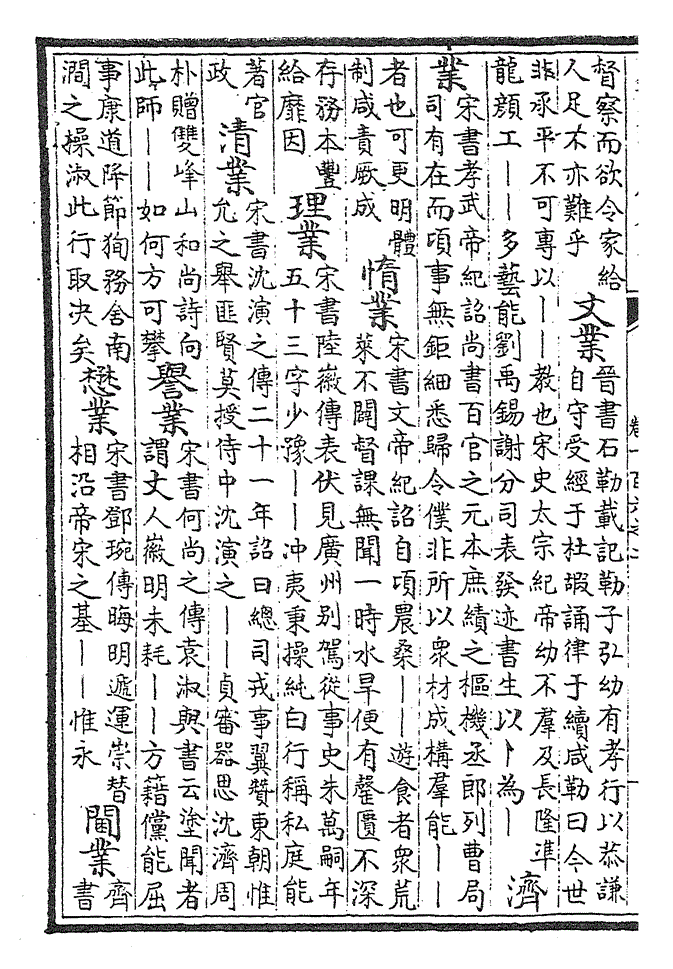 督察而欲令家給
人足不亦難乎
文業
晉書石勒載記勒子弘幼有孝行以恭謙
自守受經于杜嘏誦律于續咸勒曰今世
非承平不可專以丨丨教也宋史太宗紀帝幼不羣及長隆準
龍顔工丨丨多藝能劉禹錫謝分司表發迹書生以丨為丨
濟
業
宋書孝武帝紀詔尚書百官之元本庶績之樞機丞郎列曹局
司有在而頃事無鉅細悉歸令僕非所以衆材成構羣能丨丨
者也可更明體
制咸責厥成
惰業
宋書文帝紀詔自頃農桑丨丨遊食者衆荒
萊不闢督課無聞一時水旱便有罄匱不深
存務本豐
給靡因
理業
宋書陸徽傳表伏見廣州别駕從事史朱萬嗣年
五十三字少豫丨丨冲夷秉操純白行稱私庭能
著官
政
清業
宋書沈演之傳二十一年詔曰總司戎事翼贊東朝惟
允之舉匪賢莫授侍中沈演之丨丨貞審器思沈濟周
朴贈雙峰山和尚詩向
此師丨丨如何方可攀
譽業
宋書何尚之傳袁淑與書云塗聞者
謂丈人徽明未耗丨丨方籍儻能屈
事康道降節狥務舍南
澗之操淑此行取決矣
懋業
宋書鄧琬傳晦明遞運崇替
相沿帝宋之基丨丨惟永
閫業
齊
書